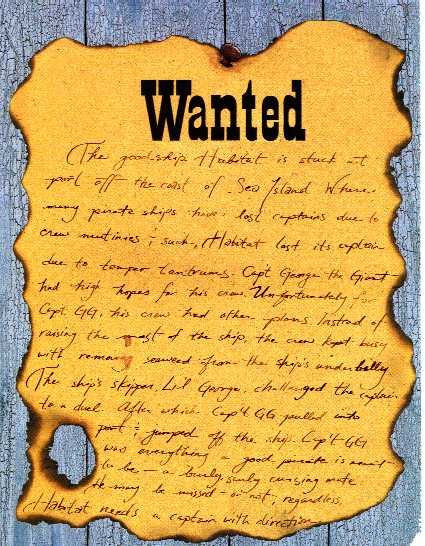 Wanted
The goodship Habitat is stuck at
port off the coast of Sea Island Where
many pirate ships have lost captains due to
crew mutinies & such, Habitat lost its captain
due to temper tantrums. Cap't George the Giant
had high hopes for his crew. Unfortunately for
Capt GG, his crew had other plans. Instead of
raising the mast of the ship, the crew kept busy
with removing seaweed from the ship's underbelly.
The ship's skipper, Lil George, challenged the captain
to a duel. After which Cap't GG pulled into
port & jumped off the ship. Cap't GG
was everything a good pirate is meant
to be - a burly, surly cursing mate
He may be missed - or not, regardless,
Habitat needs a captain with direction